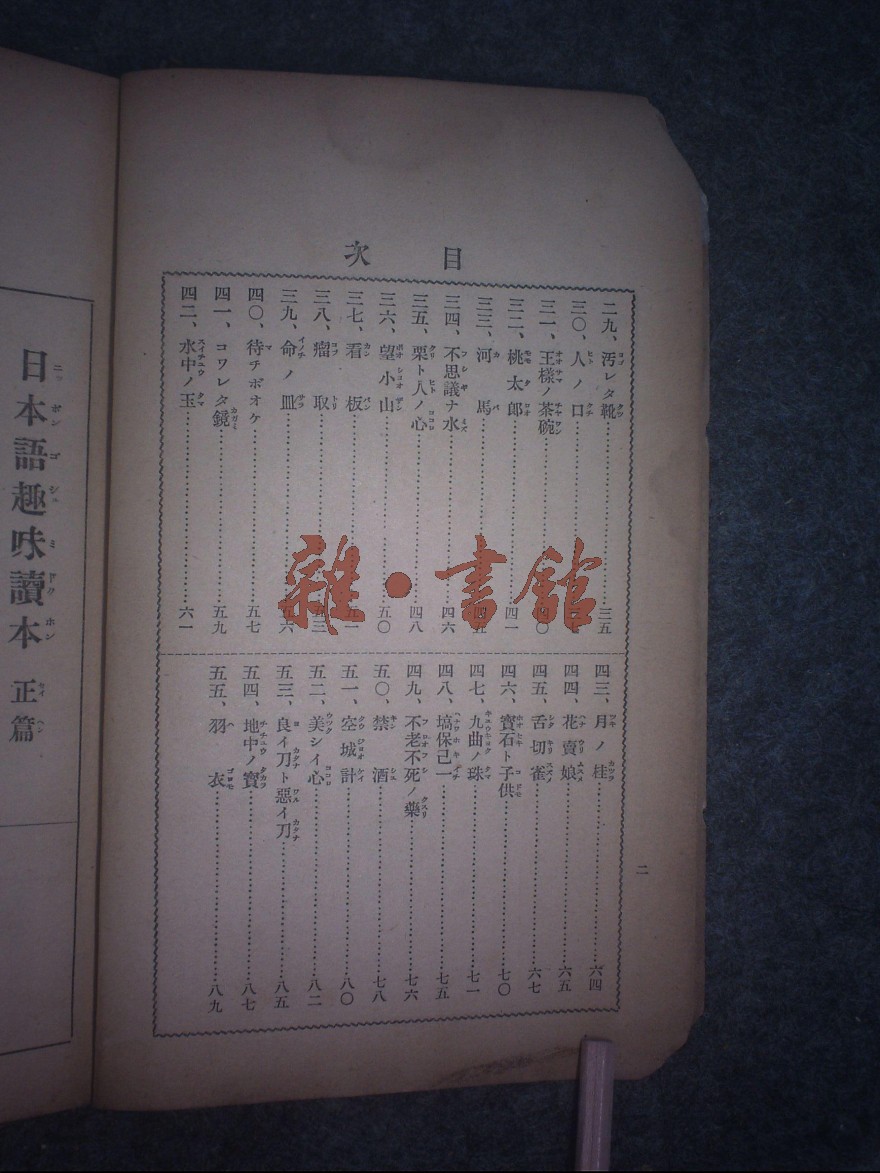 目次
二九、汚レタ靴……三五
三〇、人ノ口
三一、王樣ノ茶碗……四〇
三二、桃太郎……四一
三三、河馬……四五
三四、不思議ナ水……四六
三五、栗ト人ノ心……四八
三六、望小山……五〇
三七、看板……五一
三八、瘤取……五三
三九、命ノ皿……五六
四〇、待チボオケ……五七
四一、コワレタ鏡……五九
四二、水中ノ玉……六一
四三、月ノ桂……六四
四四、花賣娘……六五
四五、舌切雀……六七
四六、寶石ト子供……七〇
四七、九曲ノ珠……七一
四八、塙保己一……七五
四九、不老不死ノ藥……七六
五〇、禁酒……七八
五一、空城計……八〇
五二、美シイ心……八二
五三、良イ刀ト惡イ刀……八五
五四、地中ノ寶……八七
五五、羽衣……八九
二
日本語趣味讀本 正篇
雜·書館